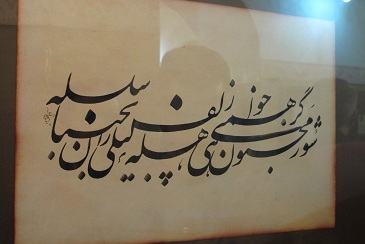 شور مجنون گر همی خواهی هله زلف لیلی را بجنبان سلسله